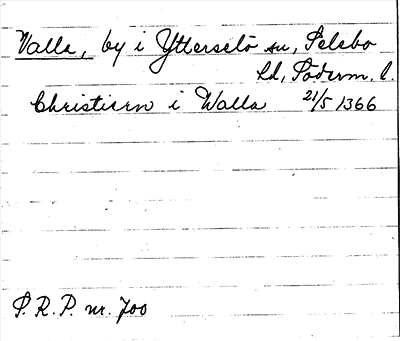 Valla, by i Ytterselö sn, Selebo
hd, Söderm. l.
Christiern i Walla 21/5 1366
S. R. P. nr. 700